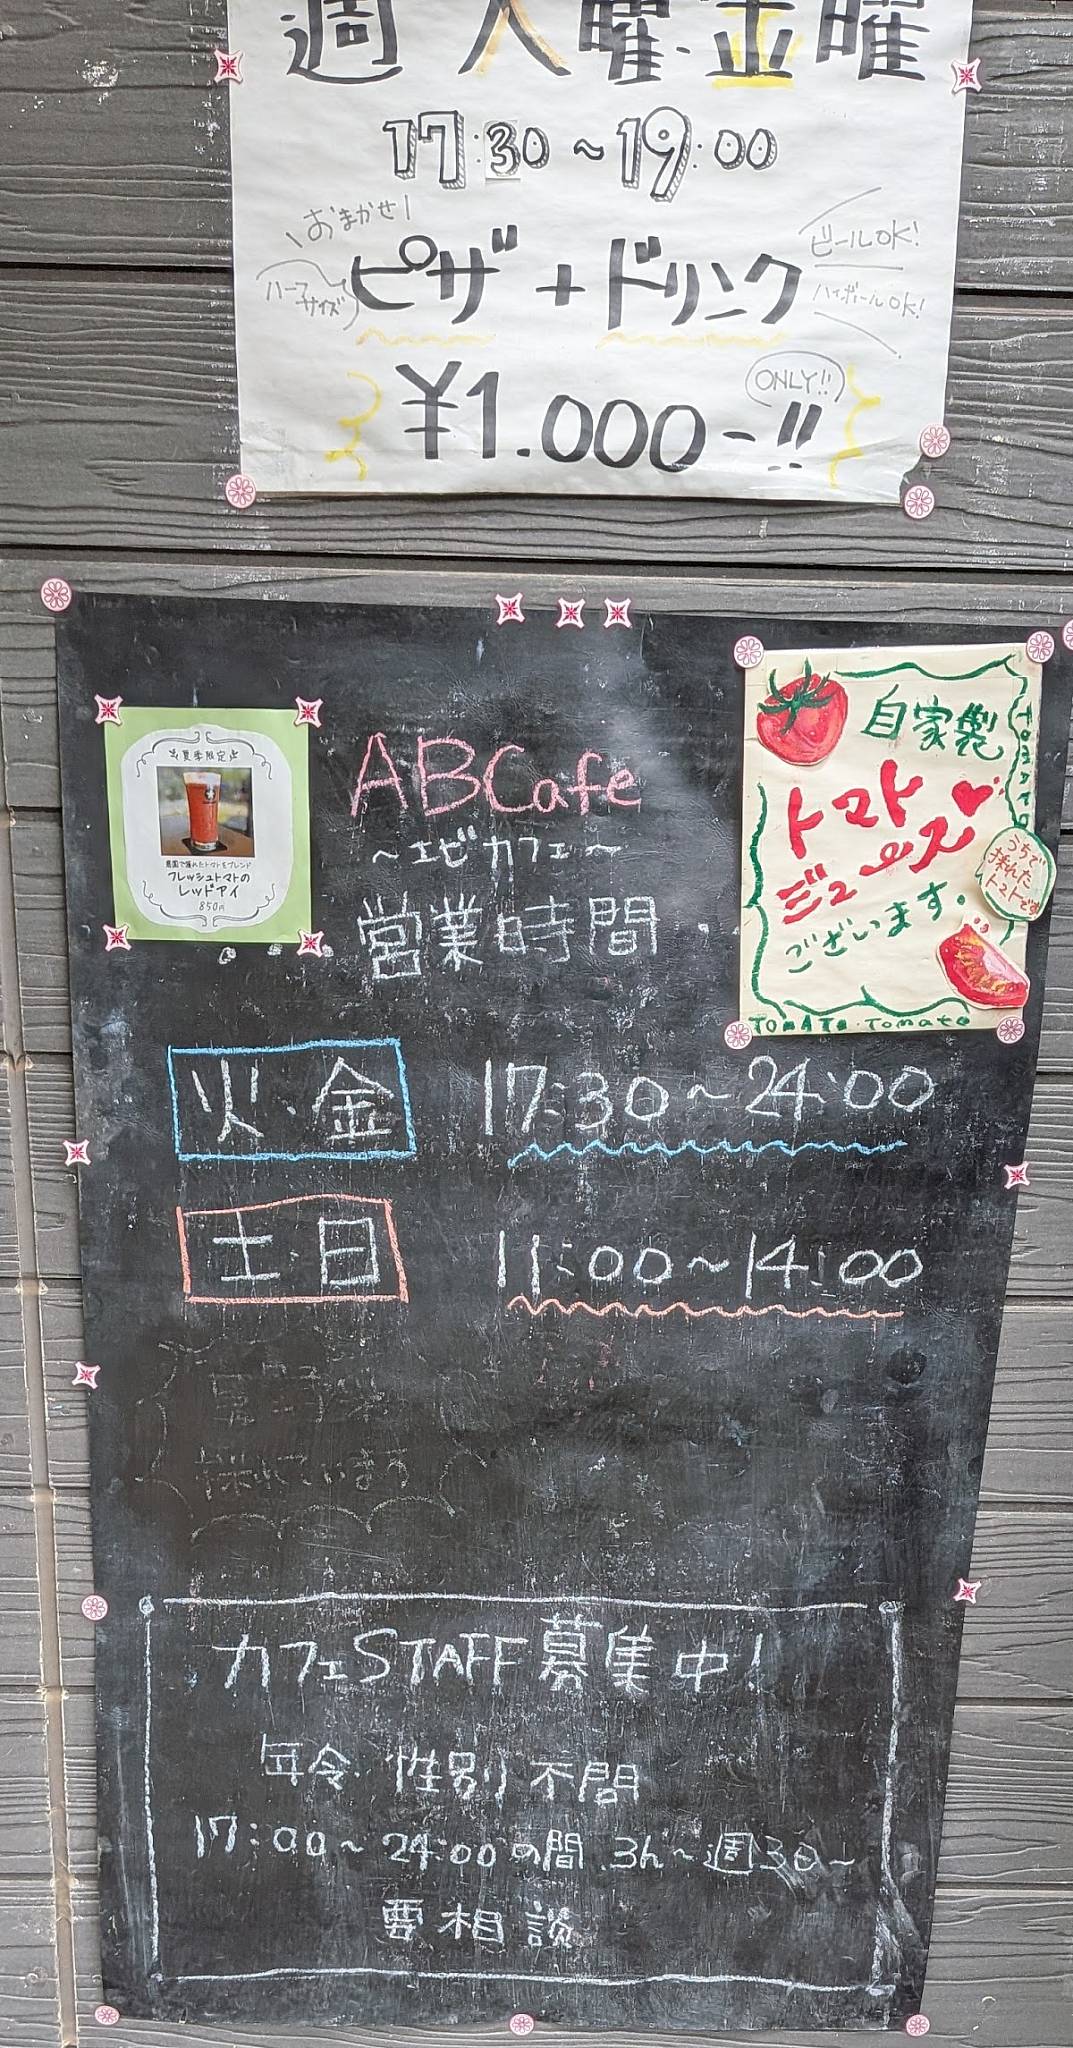 週 火曜・金曜
17:30～19:00
おまかせ！
ハーフ
サイズ
ピザ＋ドリンク
ビールOK!
ハイボールOK!
¥1.000-!!
ONLY!!
夏季限定
農園で採れたトマトをブレンド
フレッシュトマトの
レッドアイ
850円
ABCafe
～エビカフェ～
営業時間
自家製
トマト
ジュース
ございます。
うちで
採れた
トマトです
TOMATO
TOMATO・Tomato
火・金 17:30～24:00
土・日 11:00～14:00
採れています
カフェSTAFF募集中！
年令 性別 不問
17:00～24:00の間 3h～週3日～
要相談